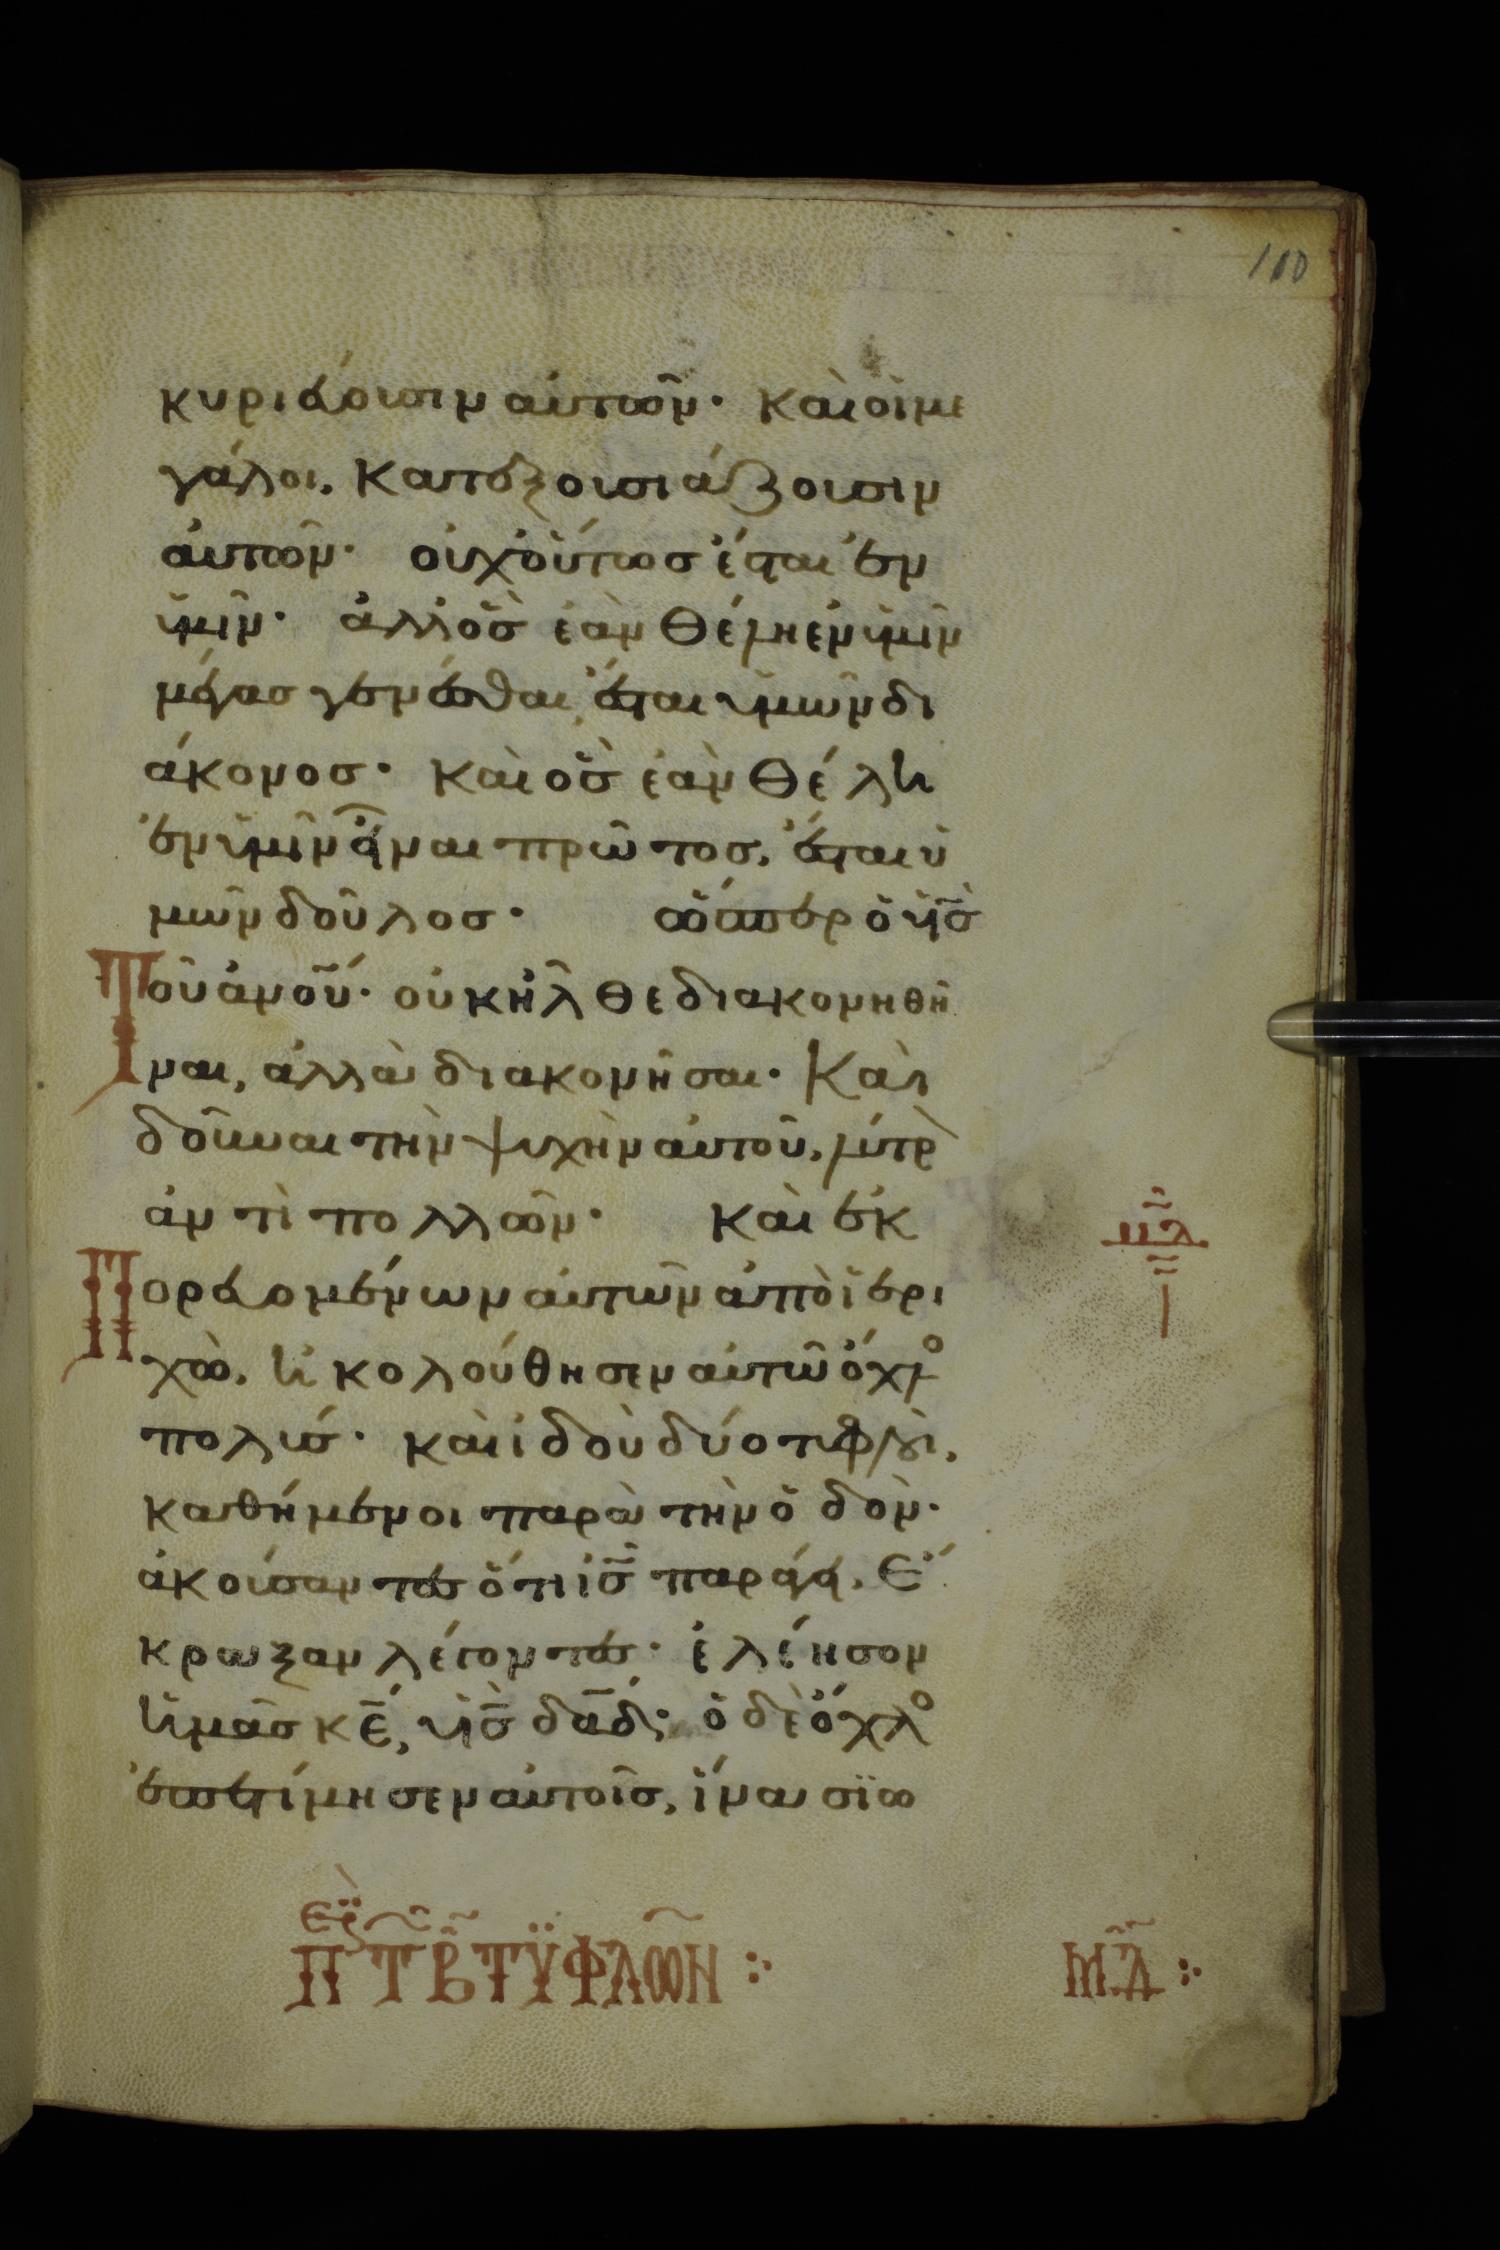 100
κυριεύουσιν αὐτῶν· καὶ οἱ με
γάλοι, κατεξουσιάζουσιν
αὐτῶν· οὐχ οὕτως ἔσται ἐν
ὑμῖν· ἀλλ ὃς ἐὰν θέλη ἐν ὑμῖν
μέγας γενέσθαι, ἔσται ὑμῶν δι
άκονος· καὶ ὃς ἐὰν θέλη
ἐν ὑμῖν εἶναι πρῶτος, ἔσται ὑ
μῶν δοῦλος· ὥσπερ ὁ ὑϊ̄ς
Τοῦ ἀνοῦ· οὐκ ἦλθε διακονηθῆ
ναι, ἀλλὰ διακονῆσαι· Καὶ
δοῦναι τὴν ψυχὴν αὐτοῦ, λύτρ
ἀντὶ πολλῶν· καὶ ἐκ
Πορευομένων αὐτῶν ἀπὸ ἱερι
χὼ, ἠκολούθησεν αὐτῶ ὄχλο
πολύς· καὶ ἰδοὺ δύο τυφλοὶ,
καθήμενοι παρὰ τὴν ὁδὸν·
ἀκούσαντες ὅτι ις̄ παράγει, Ἔ
κραξαν λέγοντες· ἐλέησον
ἡμᾶς κε̄, υἱς̄ δαδ̄· ὁ δὲ ὄχλο
ἐπετίμησεν αὐτοῖς, ἵνα σιω
Π Τ Β̄ ΤΫΦΛΩΝ :·
ΜᾹ :·